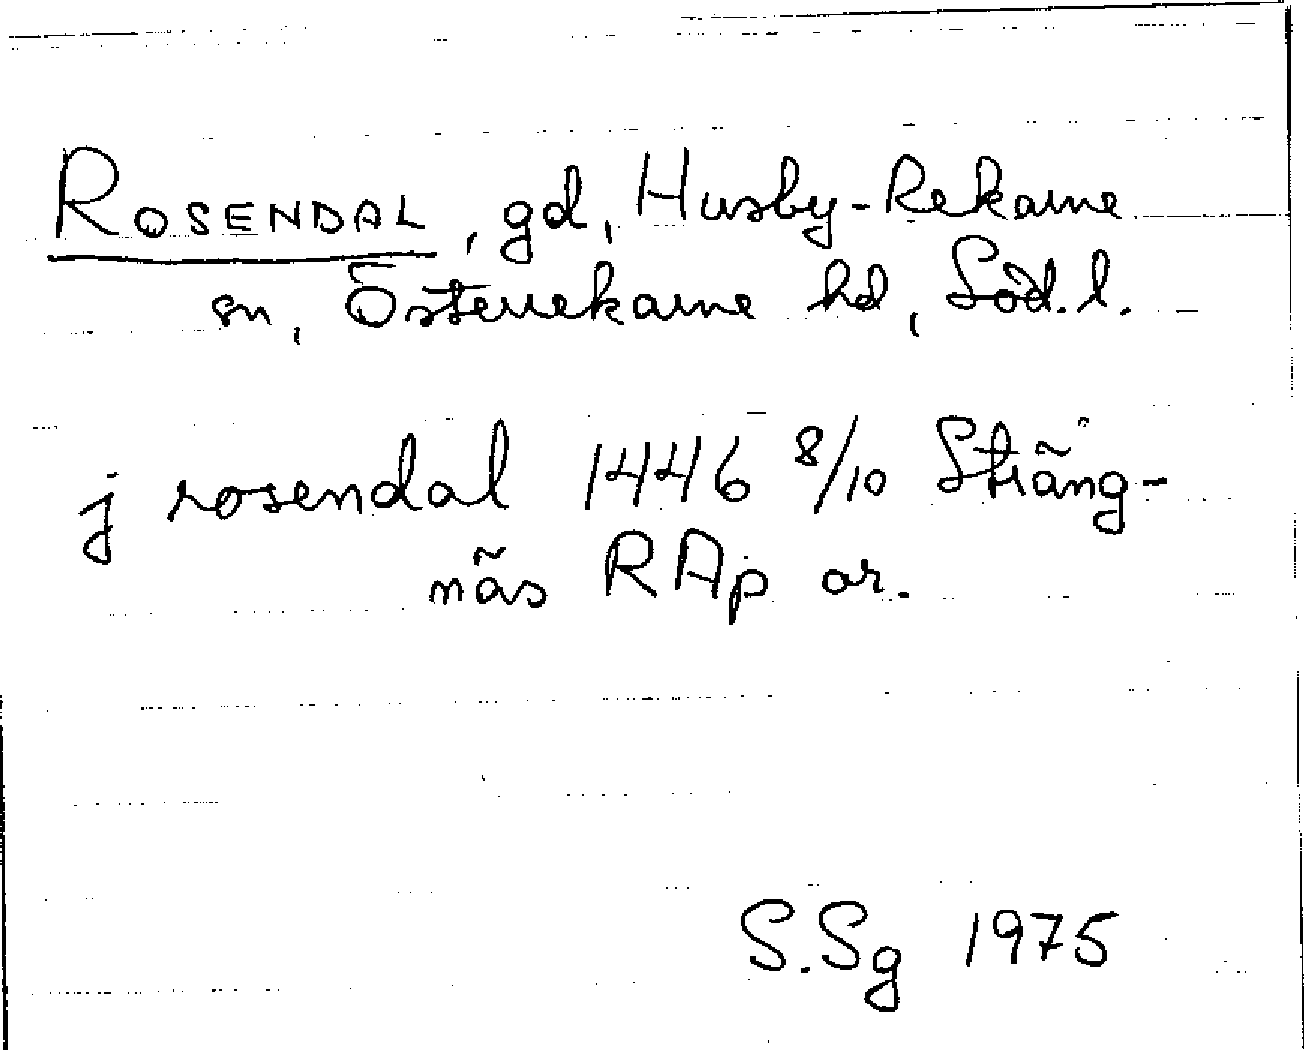 ROSENDAL, gd, Husby-Rekarne
sn, Österrekarne hd, Söd.l.
j rosendal 1446 8/10 Sträng-
näs RAp or.
S.Sg 1975